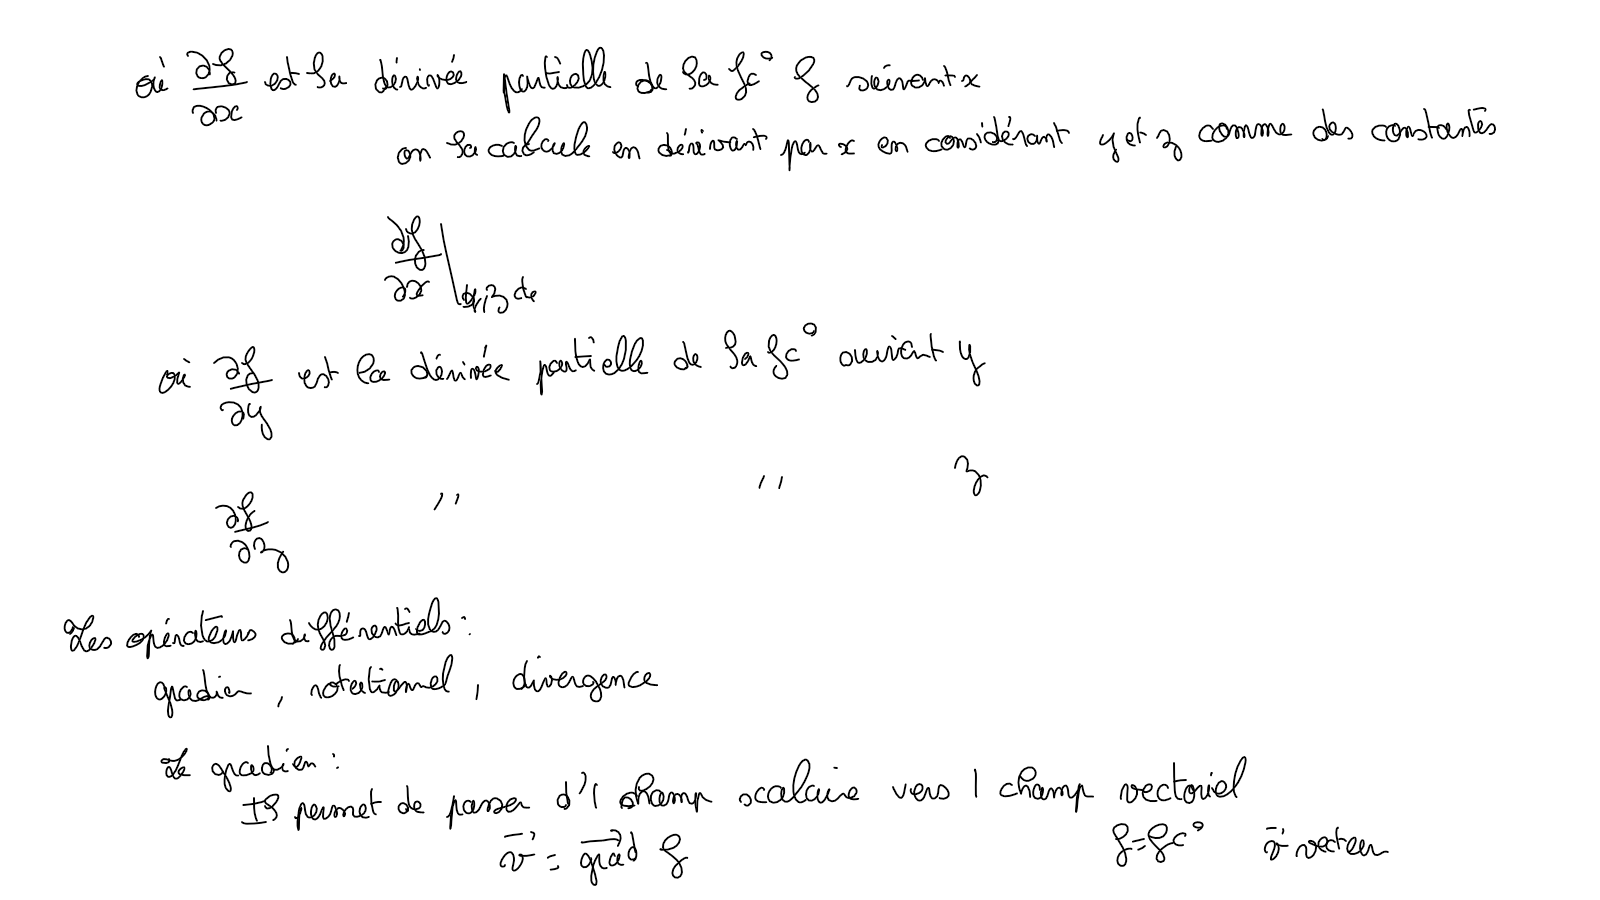 où ∂f/∂x est la dérivée partielle de la fc° f suivant x
on la calcule en dérivant par x en considérant y et z comme des constantes
∂f/∂x |y,z cte
où ∂f/∂y est la dérivée partielle de la fc° suivant y
∂f/∂z " " z
Les opérateurs différentiels :
gradien , rotationnel , divergence
Le gradien :
Il permet de passer d'1 champ scalaire vers 1 champ vectoriel
v⃗ = grad⃗ f f = fc° v⃗ vecteur